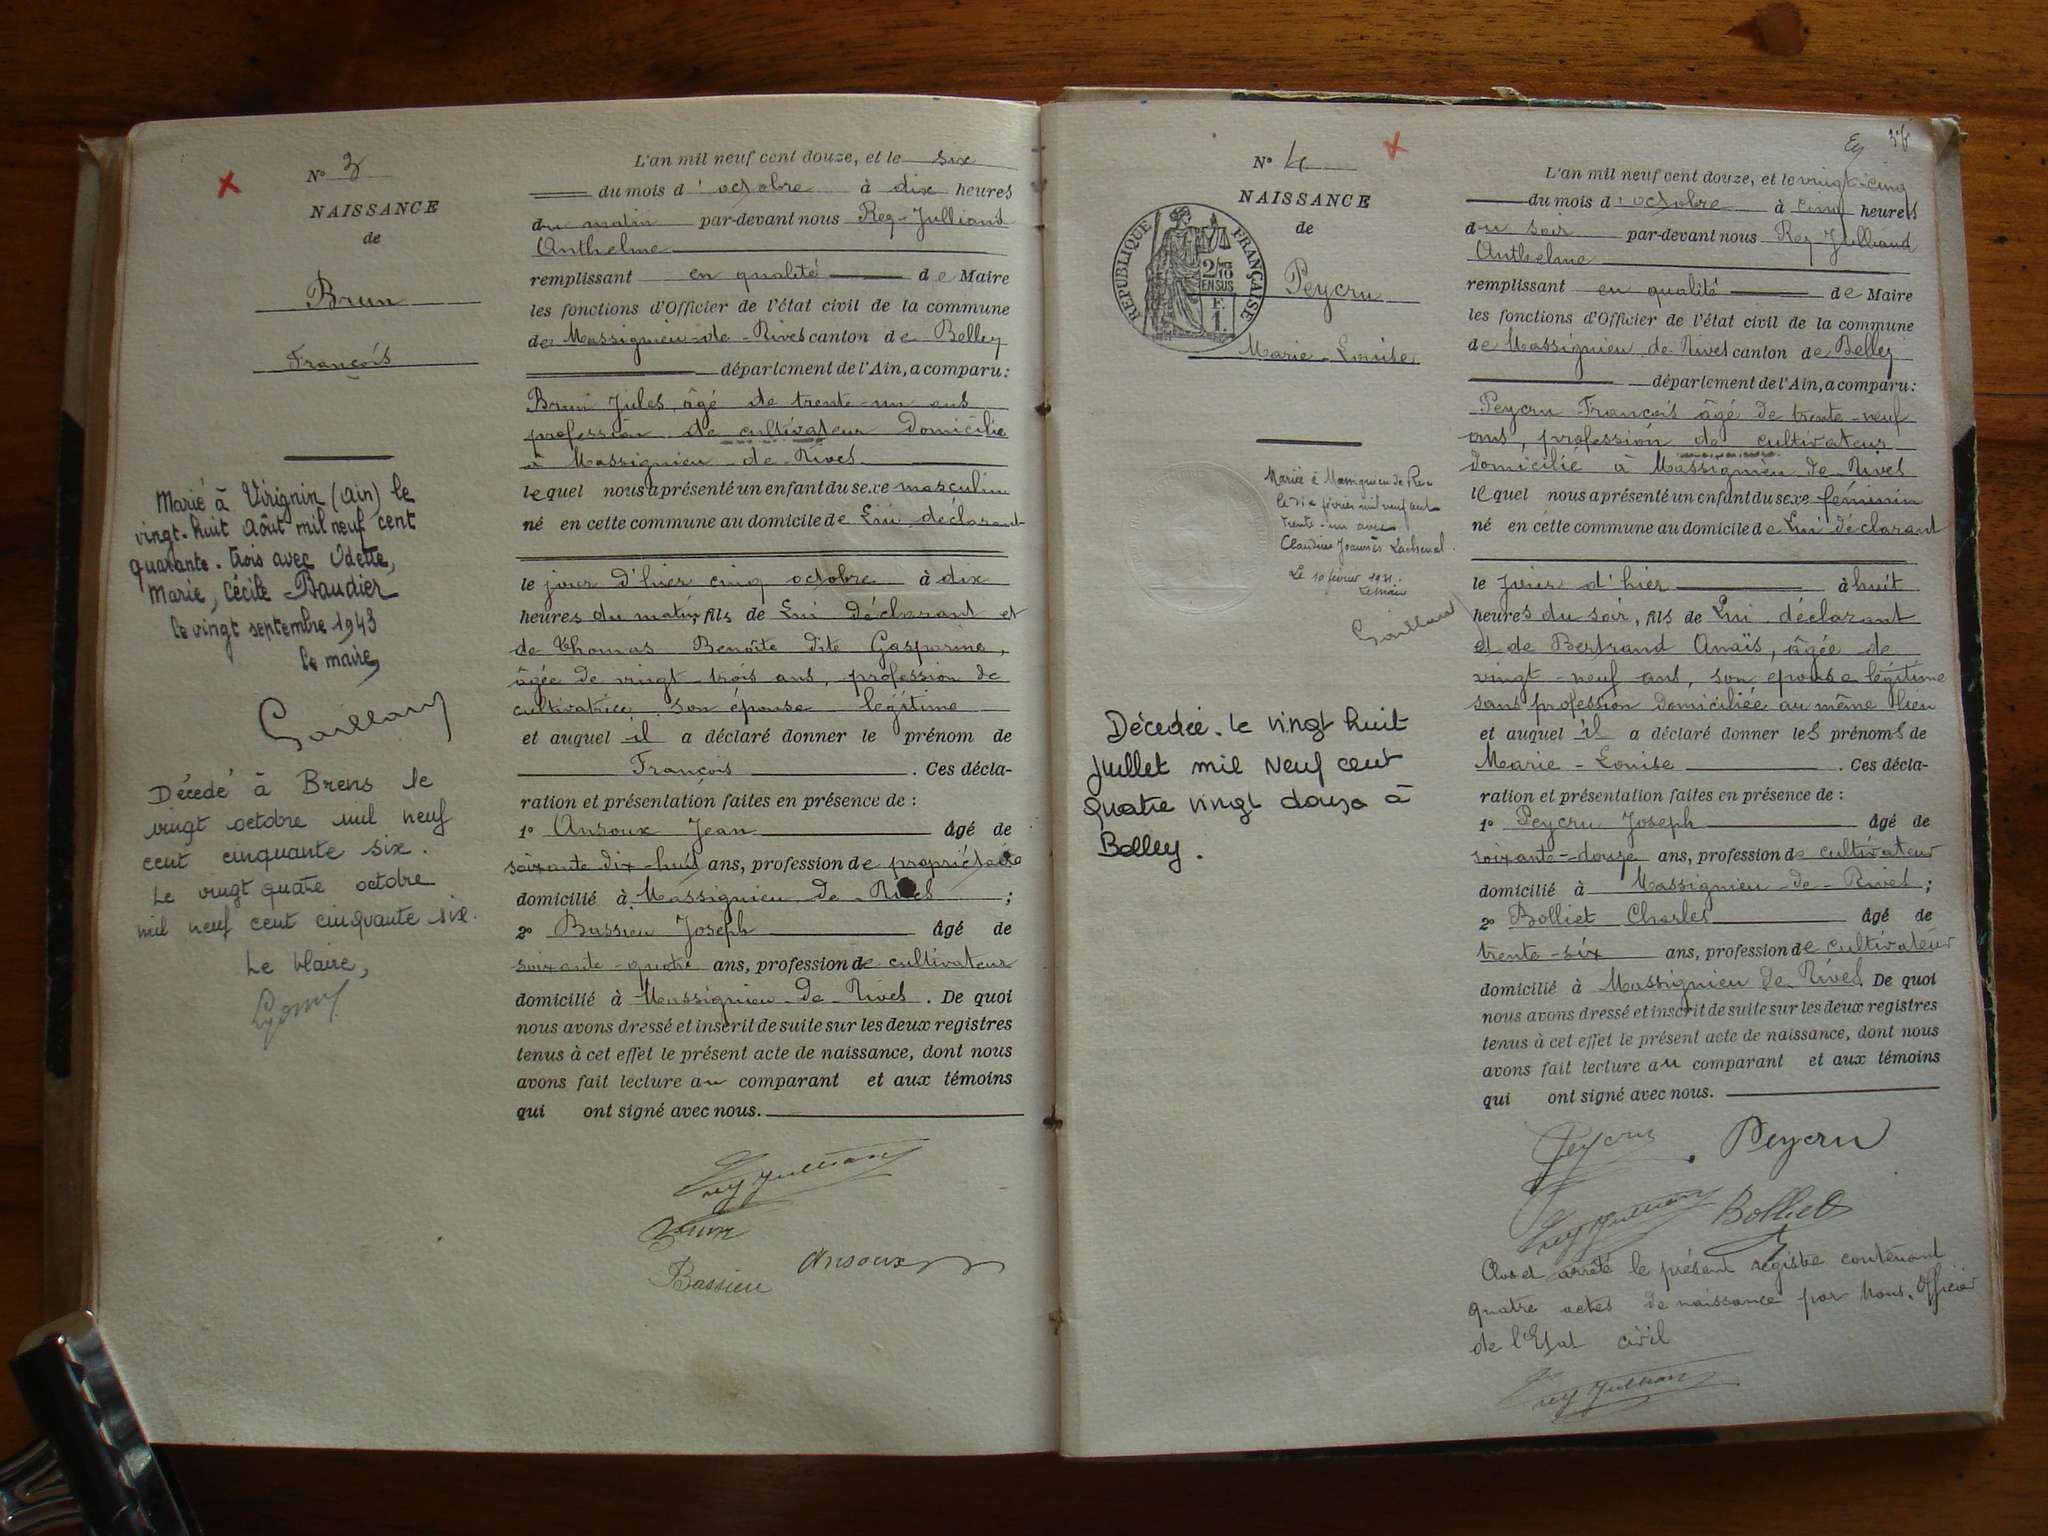 N° 3
NAISSANCE
de
Brun
François
Marié à Virignin (Ain) le
vingt-huit Août mil neuf cent
quarante-trois avec Odette,
Marie, Cécile Baudier
le vingt septembre 1943
le maire,
Gaillard
Décédé à Brens le
vingt octobre mil neuf
cent cinquante six.
Le vingt quatre octobre
mil neuf cent cinquante six.
Le Maire,
L'an mil neuf cent douze, et le six
du mois d'octobre à dix heures
du matin par-devant nous Rey-Julliand
Anthelme
remplissant en qualité de Maire
les fonctions d'Officier de l'état civil de la commune
de Massignieu-de-Rives canton de Belley
département de l'Ain, a comparu :
Brun Jules, âgé de trente-un ans
profession de cultivateur domicilié
à Massignieu-de-Rives
lequel nous a présenté un enfant du sexe masculin
né en cette commune au domicile de Lui déclarant
le jour d'hier cinq octobre à dix
heures du matin, fils de Lui déclarant et
de Thomas Benoîte dite Gasparine,
âgée de vingt-trois ans, profession de
cultivatrice son épouse légitime
et auquel il a déclaré donner le prénom de
François . Ces décla-
ration et présentation faites en présence de :
1° Ansoux Jean âgé de
soixante dix-huit ans, profession de propriétaire
domicilié à Massignieu de-Rives ;
2° Bassieu Joseph âgé de
soixante-quatre ans, profession de cultivateur
domicilié à Massignieu-de-Rives. De quoi
nous avons dressé et inscrit de suite sur les deux registres
tenus à cet effet le présent acte de naissance, dont nous
avons fait lecture au comparant et aux témoins
qui ont signé avec nous.
Rey Julliand
Brun
Ansoux
Bassieu
N° 4
NAISSANCE
de
RÉPUBLIQUE FRANÇAISE
2/10
EN SUS
F.
1.
Peycru
Marie-Louise
Mariée à Massignieu de Rives
le dix février mil neuf cent
trente-un avec
Claudius Joannès Lachenal.
Le 10 février 1931.
Le Maire
Gaillard
Décédée le vingt huit
juillet mil neuf cent
quatre vingt douze à
Belley.
L'an mil neuf cent douze, et le vingt-cinq
du mois d'octobre à cinq heures
du soir par-devant nous Rey-Julliand
Anthelme
remplissant en qualité de Maire
les fonctions d'Officier de l'état civil de la commune
de Massignieu de Rives canton de Belley
département de l'Ain, a comparu :
Peycru François âgé de trente-neuf
ans, profession de cultivateur
domicilié à Massignieu de Rives
lequel nous a présenté un enfant du sexe féminin
né en cette commune au domicile de Lui déclarant
le jour d'hier à huit
heures du soir, fils de Lui déclarant
et de Bertrand Anaïs, âgée de
vingt-neuf ans, son épouse légitime
sans profession domiciliée au même lieu
et auquel il a déclaré donner les prénoms de
Marie-Louise . Ces décla-
ration et présentation faites en présence de :
1° Peycru Joseph âgé de
soixante-douze ans, profession de cultivateur
domicilié à Massignieu-de-Rives ;
2° Bolliet Charles âgé de
trente-six ans, profession de cultivateur
domicilié à Massignieu de Rives. De quoi
nous avons dressé et inscrit de suite sur les deux registres
tenus à cet effet le présent acte de naissance, dont nous
avons fait lecture au comparant et aux témoins
qui ont signé avec nous.
Peycru Peycru
Rey Julliand Bolliet
Clos et arrêté le présent registre contenant
quatre actes de naissance par Nous, Officier
de l'Etat civil
Rey Julliand